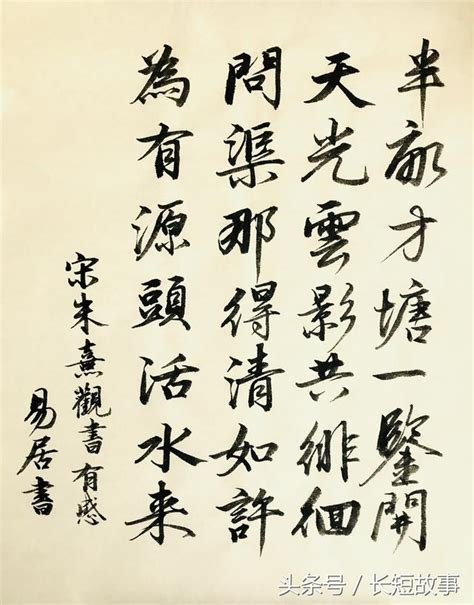 半畝方塘一鑒開
天光雲影共徘徊
問渠那得清如許
為有源頭活水来
宋朱熹觀書有感
易居書
头条号／长短故事